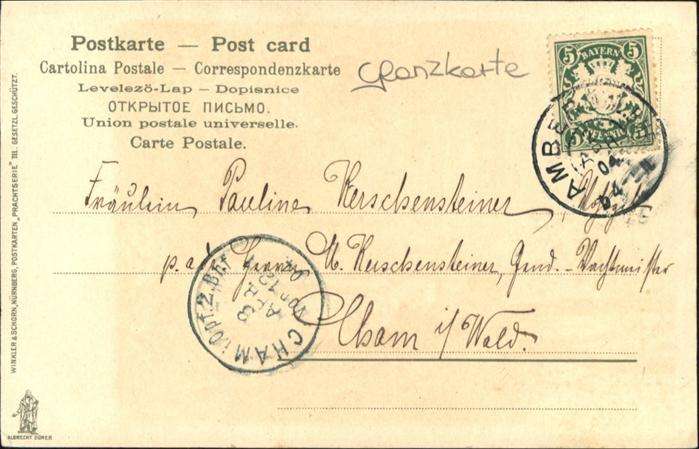 Postkarte — Post card
Cartolina Postale — Correspondenzkarte
Levelezö-Lap — Dopisnice
ОТКРЫТОЕ ПИСЬМО.
Union postale universelle.
Carte Postale.
Glanzkarte
5 BAYERN 5
5 PFENNIG 5
AMBERG
04
Fräulein Pauline Kerschensteiner
p. ad. M. Kerschensteiner, Gend.-Wachtmeister
Cham i/Wald.
CHAM
WINKLER & SCHORN, NÜRNBERG, POSTKARTEN „PRACHTSERIE" III. GESETZL. GESCHÜTZT.
ALBRECHT DÜRER